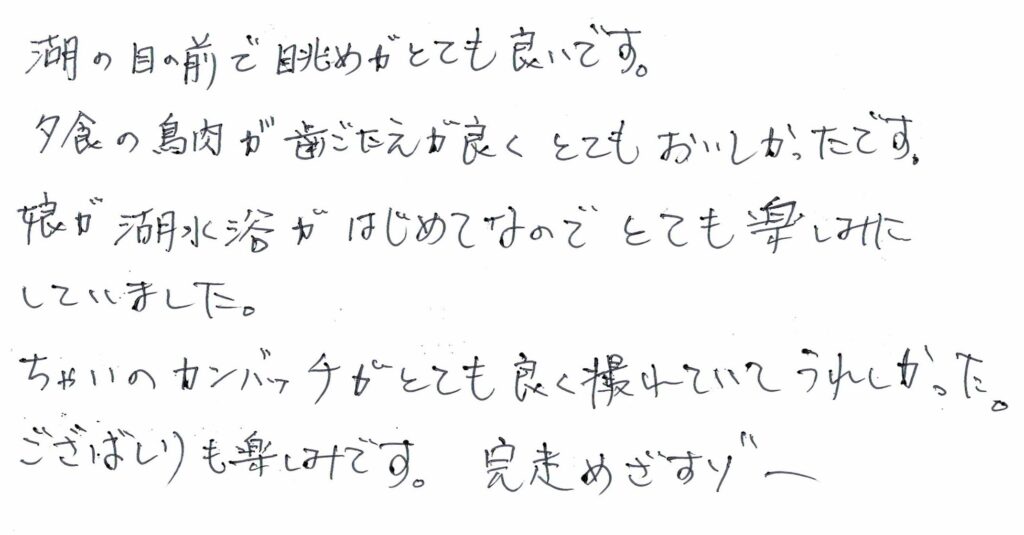 湖の目の前で眺めがとても良いです。
夕食の鳥肉が歯ごたえが良くとてもおいしかったです。
娘が湖水浴がはじめてなのでとても楽しみに
していました。
ちゃいのカンバッチがとても良く撮れていてうれしかった。
ござばしりも楽しみです。 完走めざすゾー